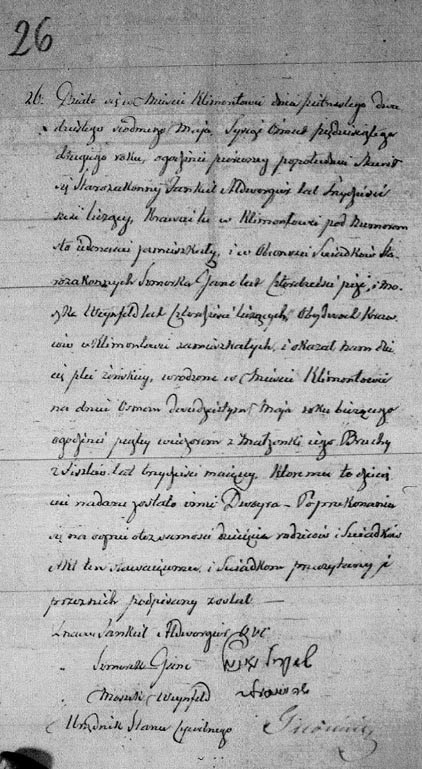 26
26. Działo się w Mieście Klimontowie dnia piętnastego dwu
dziestego siodmego Maja, Tysiąc Osmset pięćdziesiątego
drugiego roku, o godzinie pierwszey popołudniu Stawił
się Starozakonny Jankiel Aldworgier lat Trzydzieści
sześć liczący, Krawiec tu w Klimontowie pod Numerem
sto iedenaście zamieszkały, i w Obecności Świadków Sta
rozakonnych Szmerka Gianc lat Czterdzieści pięć, i Mo
szka Weynfeld lat Czterdzieści liczących, Obydwóch Kraw
ców w Klimontowie zamieszkałych, i okazał nam dzi
cię płci żeńskiey, urodzone w Mieście Klimontowie
na dniu Osmym dwudziestym Maja roku bieżącego
o godzinie piątey wieczorem z Małżonki iego Bruchy
z lat trzydzieści maiącey. Któremu to dzieci
ciu nadane zostało imie Dwoyra - Po przekonaniu
się na o tożsamości dziecięcia rodziców i Świadków
Akt ten stawaiącemu i Świadkom przeczytany i
przez nich podpisany został
Jankiel Aldworgier
Szmerek Gianc
Moszek Weynfeld
Urzędnik Stanu Cywilnego